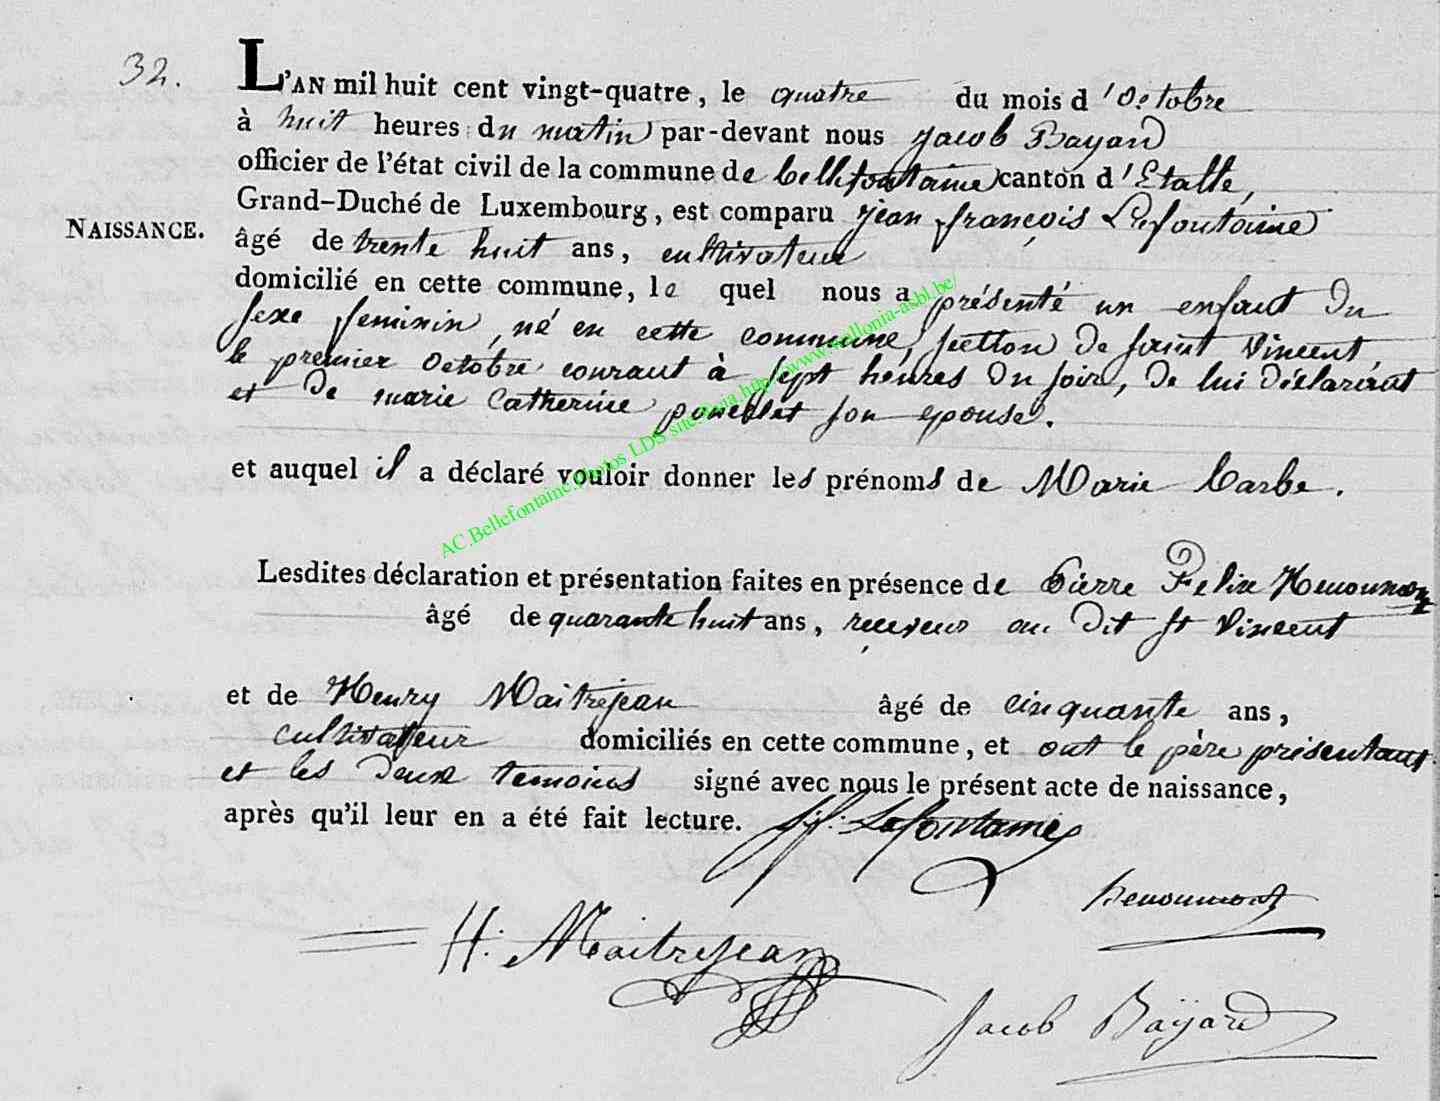 32.
L'AN mil huit cent vingt-quatre, le quatre du mois d'octobre
à huit heures du matin par-devant nous Jacob Bayard
officier de l'état civil de la commune de bellefontaine canton d'Etalle,
Grand-Duché de Luxembourg, est comparu jean françois Lafontaine
NAISSANCE.
âgé de trente huit ans, cultivateur
domicilié en cette commune, le quel nous a présenté un enfant du
sexe feminin, né en cette commune, section de saint vincent,
le premier octobre courant à sept heures du soir, de lui déclarant
et de marie Catherine poncelet son epouse.
et auquel il a déclaré vouloir donner les prénoms de Marie barbe.
AC.Bellefontaine Photos LDS sne http://www.wallonia-asbl.be/
Lesdites déclaration et présentation faites en présence de Pierre Felix Henoumont
âgé de quarante huit ans, receveur au dit st vincent
et de Henry Maitrejean âgé de cinquante ans,
cultivateur domiciliés en cette commune, et ont le père présentant
et les deux temoins signé avec nous le présent acte de naissance,
après qu'il leur en a été fait lecture. jf: Lafontaine
henoumont
H. Maitrejean
Jacob Baÿard